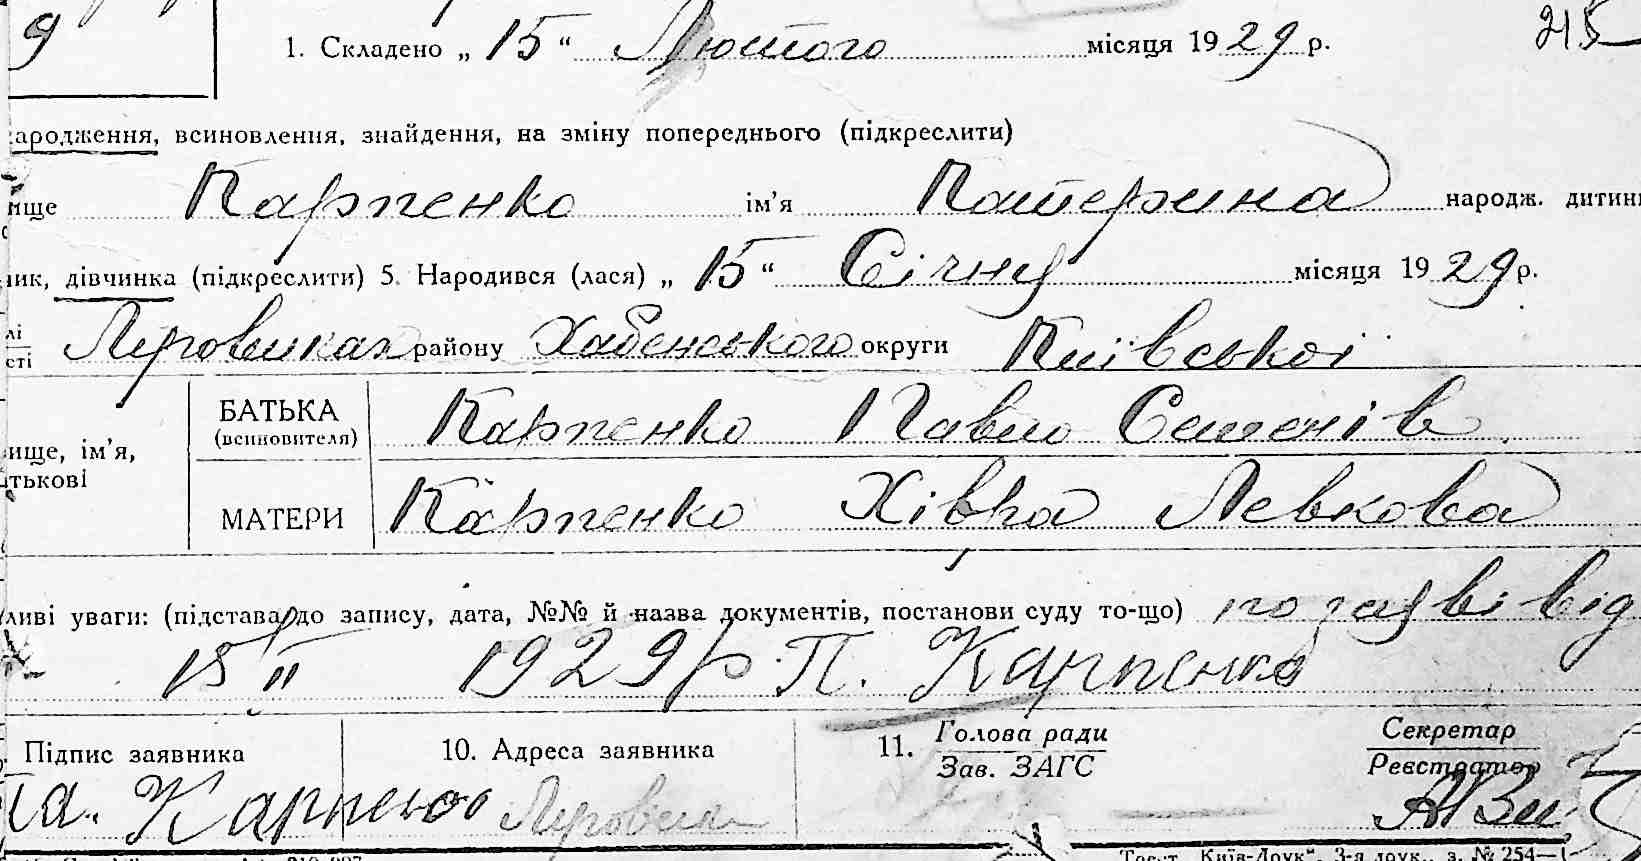 9
1. Складено „ 15 “ Лютого місяця 1929 р.
215
ародження, всиновлення, знайдення, на зміну попереднього (підкреслити)
ище Карпенко ім’я Катерина народж. дитини
ик, дівчинка (підкреслити) 5. Народився (лася) „ 15 “ Січня місяця 1929 р.
лі
сті Луговиках району Хабенського округи Київської
БАТЬКА
(всиновителя) Карпенко Павло Семенів
ище, ім’я,
тькові
МАТЕРИ Карпенко Хівря Левкова
ливі уваги: (підстава до запису, дата, №№ й назва документів, постанови суду то-що) по заяві від
15/II 1929 р. П. Карпенко
Підпис заявника 10. Адреса заявника 11. Голова ради Секретар
Зав. ЗАГС Реєстратор
Карпенко
№ 254—